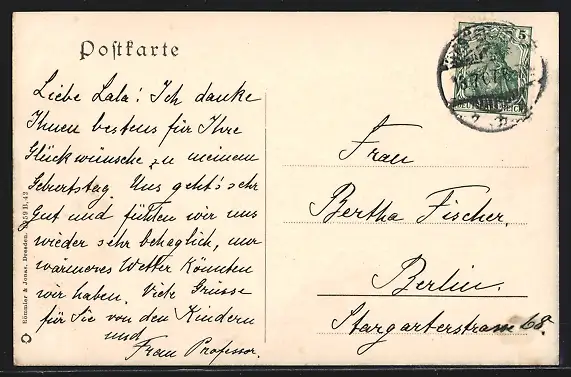 Postkarte
Liebe Lala! Ich danke
Ihnen bestens für Ihre
Glückwünsche zu meinem
Geburtstag. Uns geht's sehr
gut und fühlen wir uns
wieder sehr behaglich, nur
wärmeres Wetter könnten
wir haben. Viele Grüsse
für Sie von den Kindern
und
Frau Professor.
Frau
Bertha Fischer.
Berlin.
Stargarterstrasse 68.
5
DEUTSCHES REICH
Römmler & Jonas, Dresden.